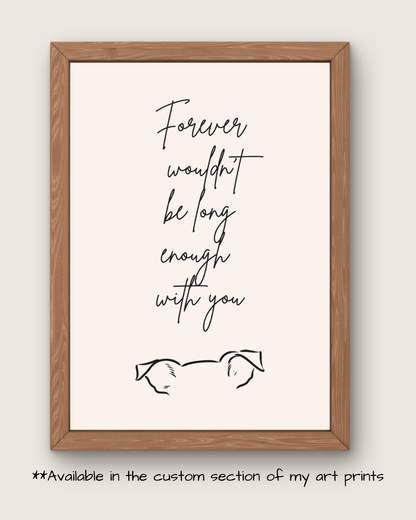 Forever
wouldn't
be long
enough
with you
**Available in the custom section of my art prints